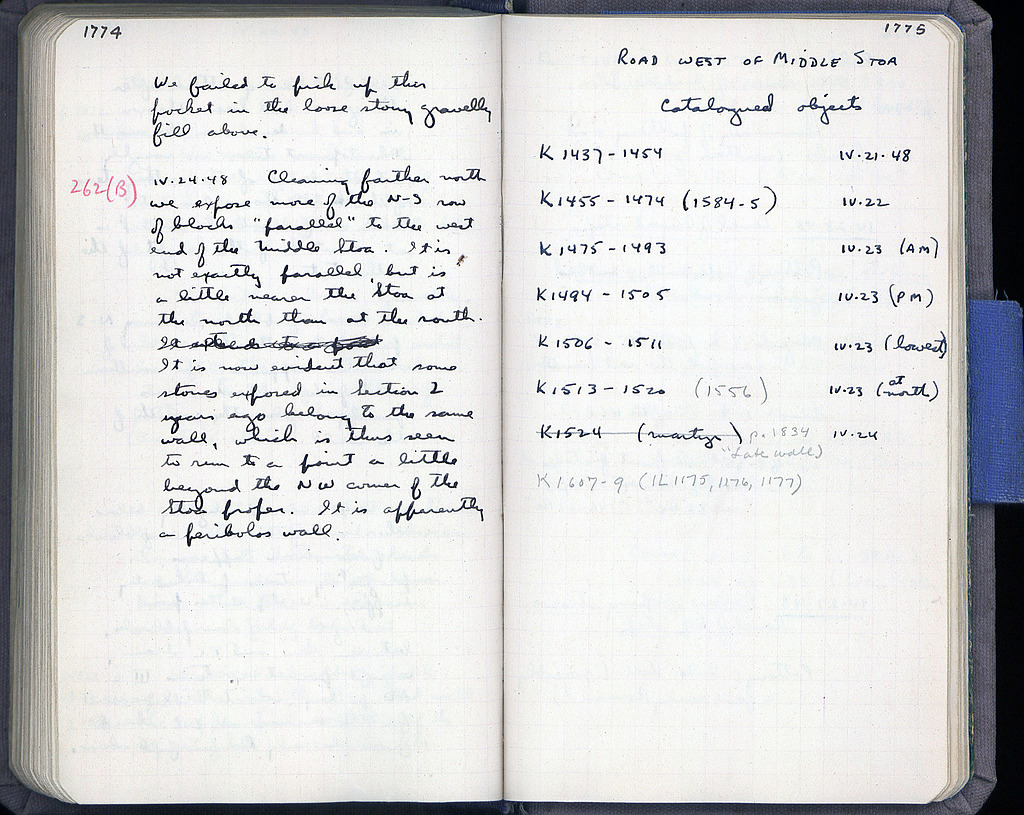 1774
We failed to pick up this
pocket in the loose stony gravelly
fill above.
262(B)
IV.24.48 Cleaning farther north
we expose more of the N-S row
of blocks "parallel" to the west
end of the Middle Stoa. It is
not exactly parallel, but is
a little nearer the Stoa at
the north than at the south.
It
It is now evident that some
stones exposed in Section 2
years ago belong to the same
wall, which is thus seen
to run to a point a little
beyond the NW corner of the
Stoa proper. It is apparently
a peribolos wall.
1775
ROAD WEST OF MIDDLE STOA
Catalogued objects
K 1437 - 1454 IV.21.48
K 1455 - 1474 (1584-5) IV.22
K 1475 - 1493 IV.23 (AM)
K 1494 - 1505 IV.23 (PM)
K 1506 - 1511 IV.23 (lowest)
K 1513 - 1520 (1556) IV.23 (at north)
K 1524 p. 1834 IV.24
"Late wall)
K 1607-9 (IL 1175, 1176, 1177)